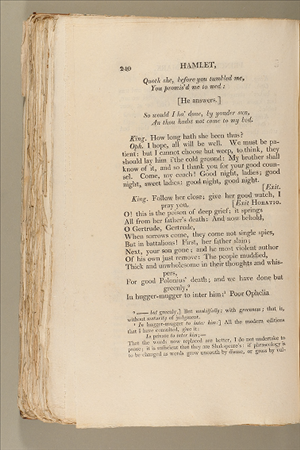 240 HAMLET,
Quoth she, before you tumbled me,
You promis'd me to wed:
[He answers.]
So would I ha' done, by yonder sun,
An thou hadst not come to my bed.
King. How long hath she been thus?
Oph. I hope, all will be well. We must be pa-
tient: but I cannot choose but weep, to think, they
should lay him i'the cold ground: My brother shall
know of it, and so I thank you for your good coun-
sel. Come, my coach! Good night, ladies; good
night, sweet ladies: good night, good night.
[Exit.
King. Follow her close; give her good watch, I
pray you. [Exit HORATIO.
O! this is the poison of deep grief; it springs
All from her father's death: And now behold,
O Gertrude, Gertrude,
When sorrows come, they come not single spies,
But in battalions! First, her father slain;
Next, your son gone; and he most violent author
Of his own just remove: The people muddied,
Thick and unwholesome in their thoughts and whis-
pers,
For good Polonius' death; and we have done but
greenly,
In hugger-mugger to inter him: Poor Ophelia
— but greenly,] But unskilfully; with greenness; that is,
without maturity of judgment.
In hugger-mugger to inter him:] All the modern editions
that I have consulted, give it:
In private to inter him;—
That the words now replaced are better, I do not undertake to
prove; it is sufficient that they are Shakspeare's: if phraseology is
to be changed as words grow uncouth by disuse, or gross by vul-